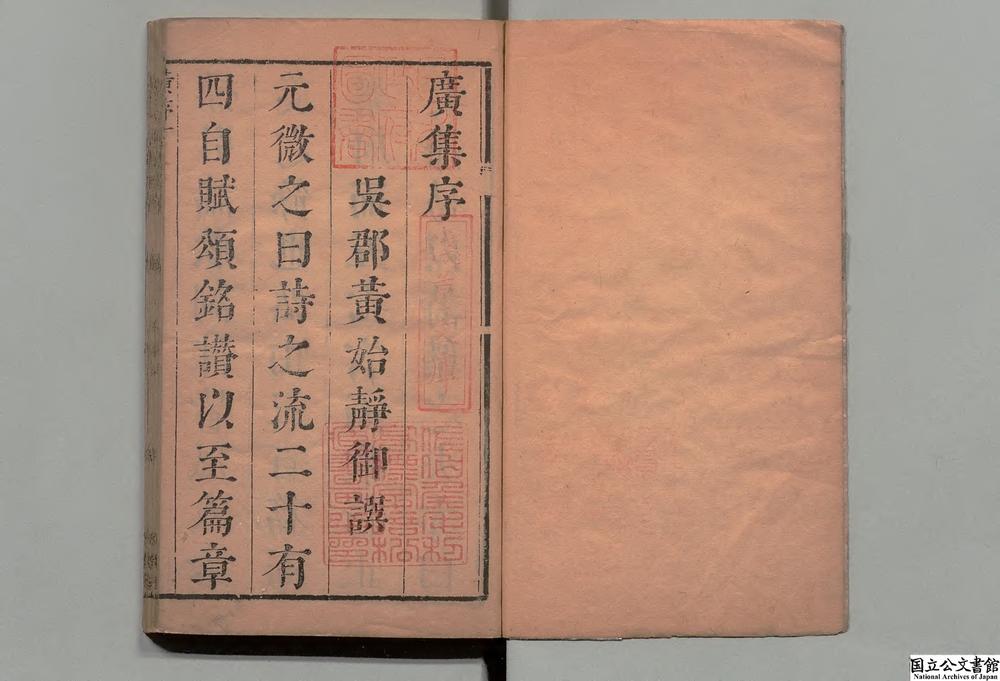 廣集序
吳郡黃始靜御譔
元微之曰詩之流二十有
四自賦頌銘讚以至篇章
国立公文書館
National Archives of Japan